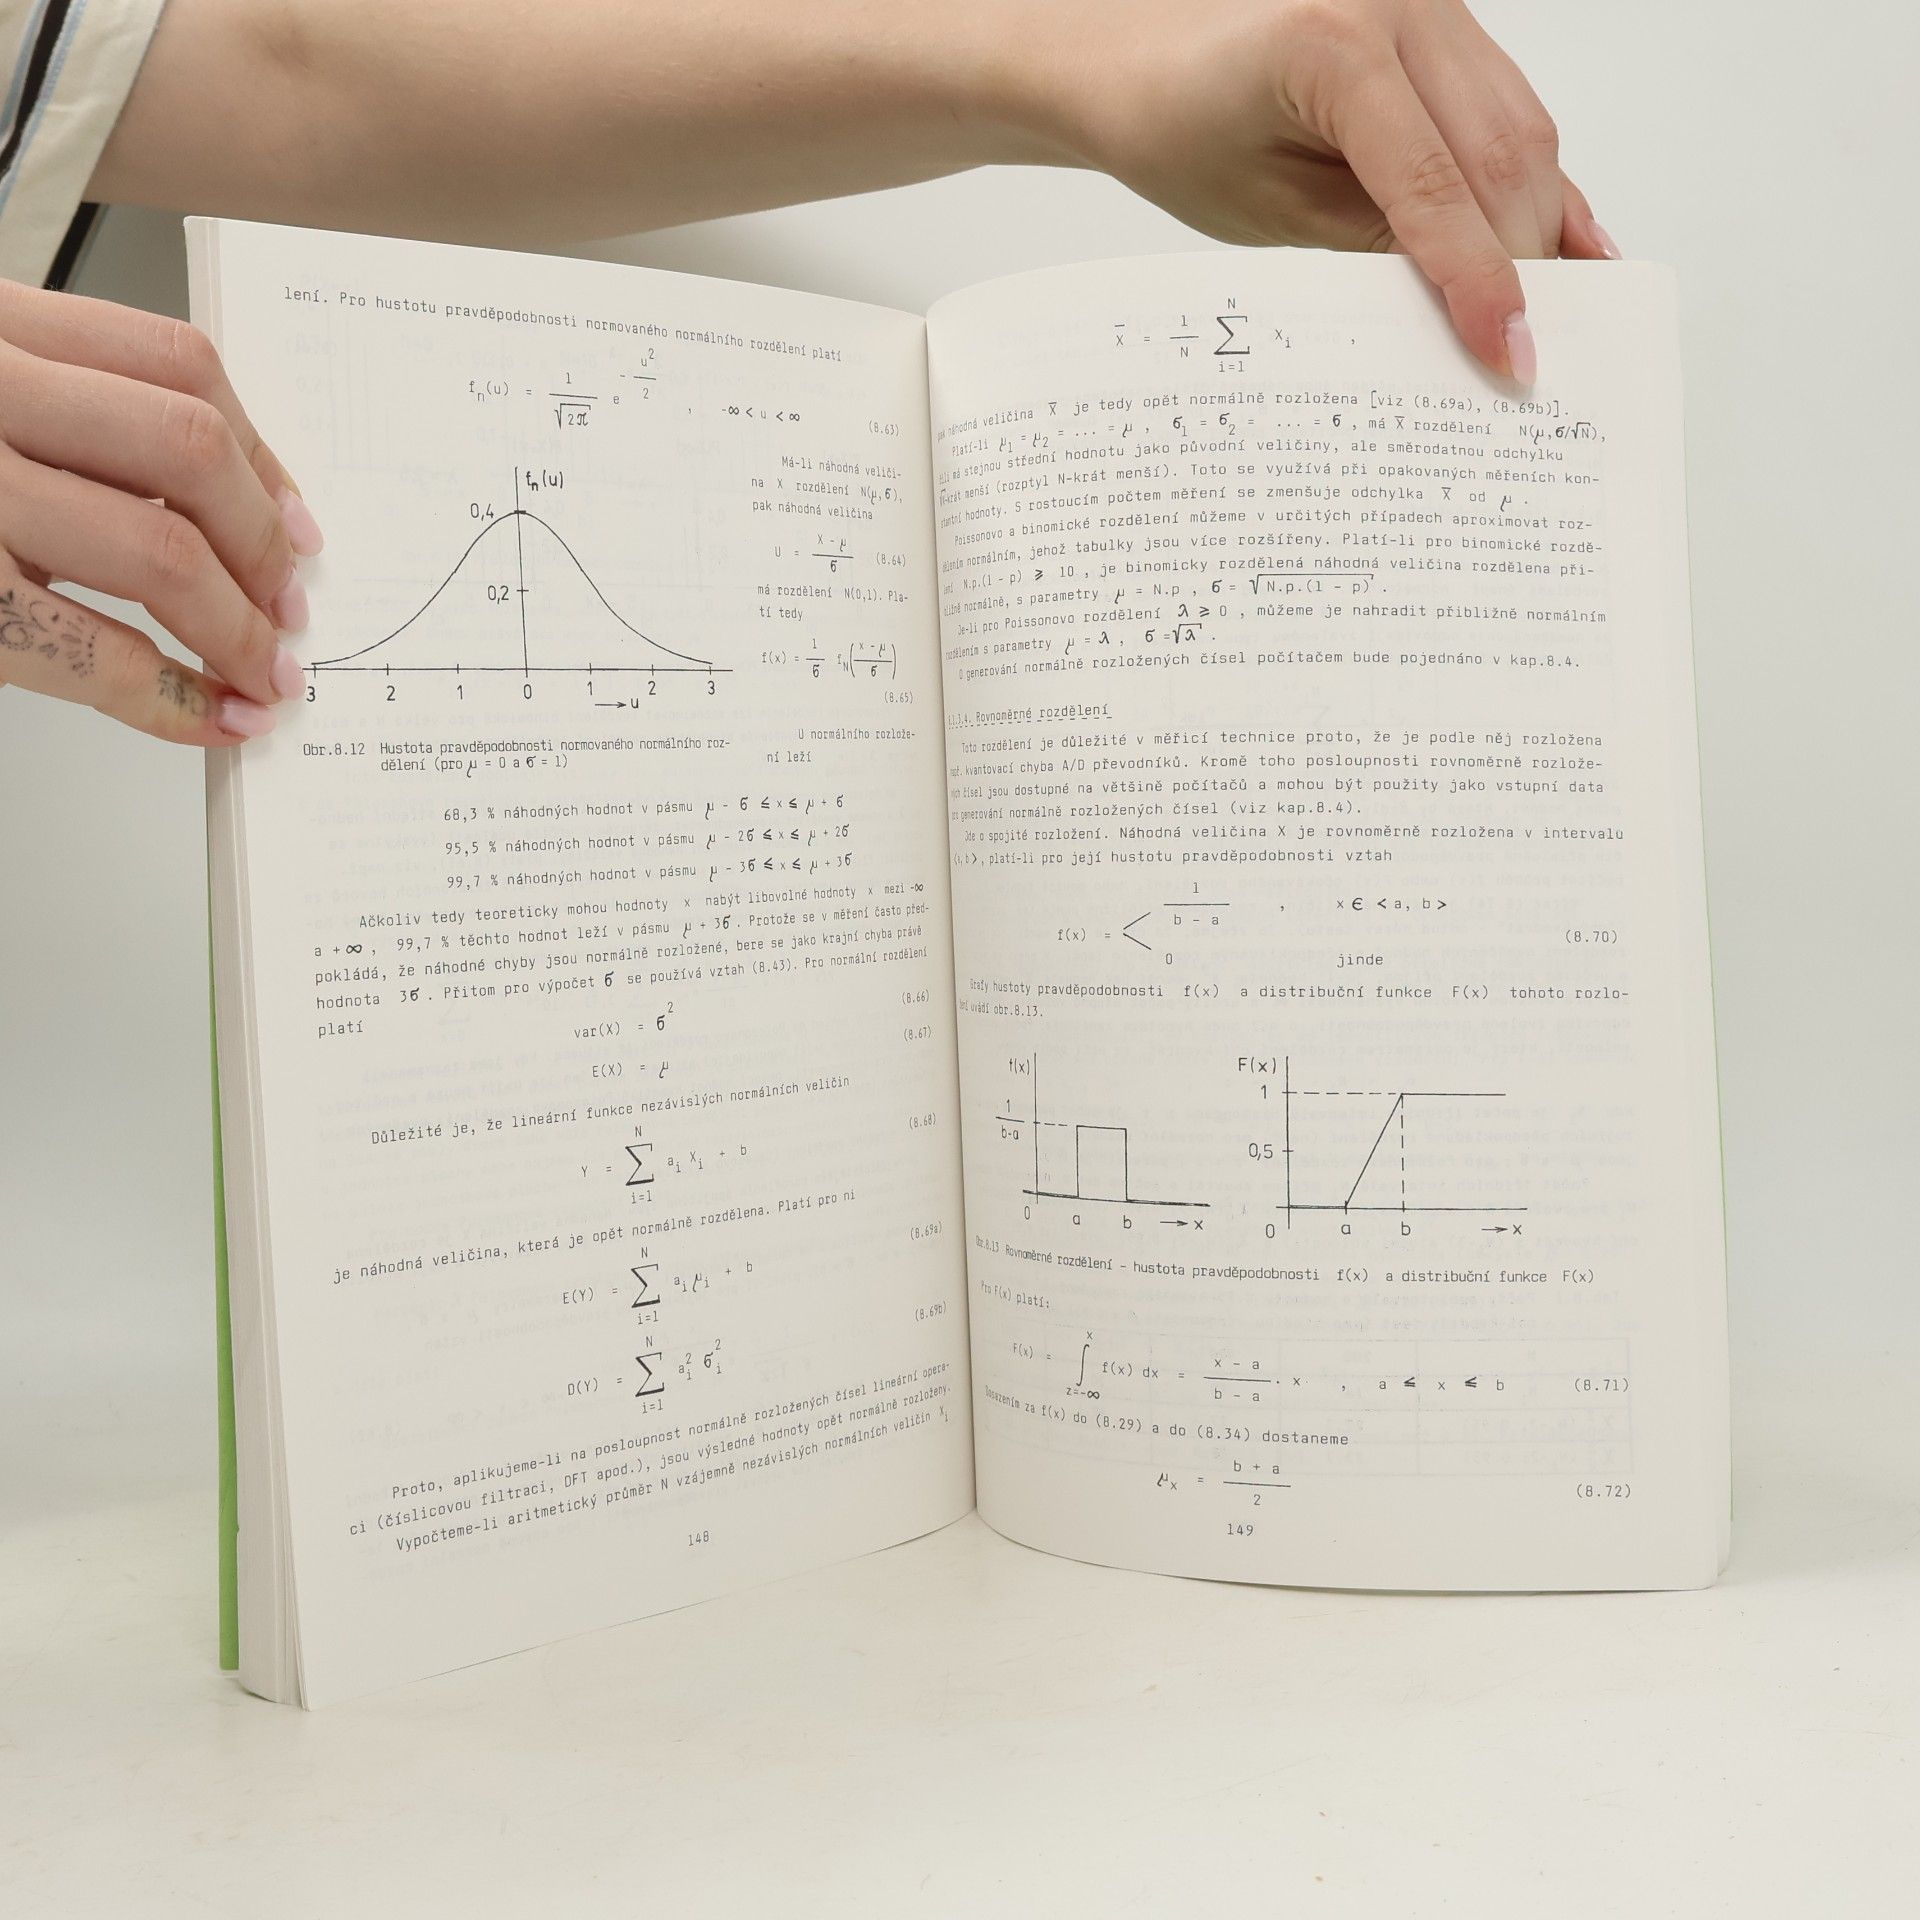 lení. Pro hustotu pravděpodobnosti normovaného normálního rozdělení platí
f_n(u) = 1/√2π e^(-u²/2) , -∞ < u < ∞ (8.63)
f_n(u)
0,4
0,2
3 2 1 0 1 2 3
→ u
Obr.8.12 Hustota pravděpodobnosti normovaného normálního roz-
dělení (pro μ = 0 a σ = 1)
Má-li náhodná veliči-
na X rozdělení N(μ,σ),
pak náhodná veličina
U = (X - μ)/σ (8.64)
má rozdělení N(0,1). Pla-
tí tedy
f(x) = 1/σ f_N((x - μ)/σ)
(8.65)
U normálního rozlože-
ní leží
68,3 % náhodných hodnot v pásmu μ - σ ≤ x ≤ μ + σ
95,5 % náhodných hodnot v pásmu μ - 2σ ≤ x ≤ μ + 2σ
99,7 % náhodných hodnot v pásmu μ - 3σ ≤ x ≤ μ + 3σ
Ačkoliv tedy teoreticky mohou hodnoty x nabýt libovolné hodnoty x mezi -∞
a +∞ , 99,7 % těchto hodnot leží v pásmu μ + 3σ. Protože se v měření často před-
pokládá, že náhodné chyby jsou normálně rozložené, bere se jako krajní chyba právě
hodnota 3σ. Přitom pro výpočet σ se používá vztah (8.43). Pro normální rozdělení
platí
var(X) = σ² (8.66)
E(X) = μ (8.67)
Důležité je, že lineární funkce nezávislých normálních veličin
Y = ∑_{i=1}^{N} a_i X_i + b (8.68)
je náhodná veličina, která je opět normálně rozdělena. Platí pro ni
E(Y) = ∑_{i=1}^{N} a_i μ_i + b (8.69a)
D(Y) = ∑_{i=1}^{N} a_i² σ_i² (8.69b)
Proto, aplikujeme-li na posloupnost normálně rozložených čísel lineární opera-
ci (číslicovou filtraci, DFT apod.), jsou výsledné hodnoty opět normálně rozloženy.
Vypočteme-li aritmetický průměr N vzájemně nezávislých normálních veličin X_i
148
X̄ = 1/N ∑_{i=1}^{N} X_i ,
pak náhodná veličina X̄ je tedy opět normálně rozložena [viz (8.69a), (8.69b)].
Platí-li μ₁ = μ₂ = ... = μ , σ₁ = σ₂ = ... = σ , má X̄ rozdělení N(μ,σ/√N),
čili má stejnou střední hodnotu jako původní veličiny, ale směrodatnou odchylku
√N-krát menší (rozptyl N-krát menší). Toto se využívá při opakovaných měřeních kon-
stantní hodnoty. S rostoucím počtem měření se zmenšuje odchylka X̄ od μ .
Poissonovo a binomické rozdělení můžeme v určitých případech aproximovat roz-
dělením normálním, jehož tabulky jsou více rozšířeny. Platí-li pro binomické rozdě-
lení N.p.(1 - p) ≥ 10 , je binomicky rozdělená náhodná veličina rozdělena při-
bližně normálně, s parametry μ = N.p , σ = √N.p.(1 - p) .
Je-li pro Poissonovo rozdělení λ ≥ 0 , můžeme je nahradit přibližně normálním
rozdělením s parametry μ = λ , σ = √λ .
O generování normálně rozložených čísel počítačem bude pojednáno v kap.8.4.
Rovnoměrné rozdělení
Toto rozdělení je důležité v měřicí technice proto, že je podle něj rozložena
např. kvantovací chyba A/D převodníků. Kromě toho posloupnosti rovnoměrně rozlože-
ných čísel jsou dostupné na většině počítačů a mohou být použity jako vstupní data
pro generování normálně rozložených čísel (viz kap.8.4).
Jde o spojité rozložení. Náhodná veličina X je rovnoměrně rozložena v intervalu
⟨a,b⟩, platí-li pro její hustotu pravděpodobnosti vztah
1/(b - a) , x ∈ < a, b >
f(x) = < (8.70)
0 jinde
Grafy hustoty pravděpodobnosti f(x) a distribuční funkce F(x) tohoto rozlo-
žení uvádí obr.8.13.
f(x)
1/(b-a)
0 a b → x
F(x)
1
0,5
0 a b → x
Obr.8.13 Rovnoměrné rozdělení - hustota pravděpodobnosti f(x) a distribuční funkce F(x)
Pro F(x) platí:
F(x) = ∫_{z=-∞}^{x} f(x) dx = (x - a)/(b - a) . x . , a ≤ x ≤ b (8.71)
Dosazením za f(x) do (8.29) a do (8.34) dostaneme
μ_x = (b + a)/2 (8.72)
149